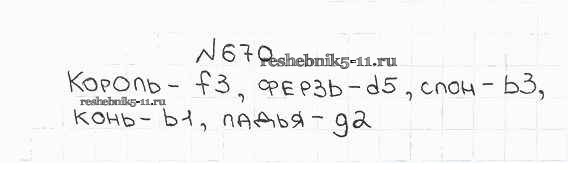 №670
reshebnik5-11.ru
Король - f3, ферзь - d5, слон - b3,
reshebnik5-11.ru
конь - b1, ладья - g2